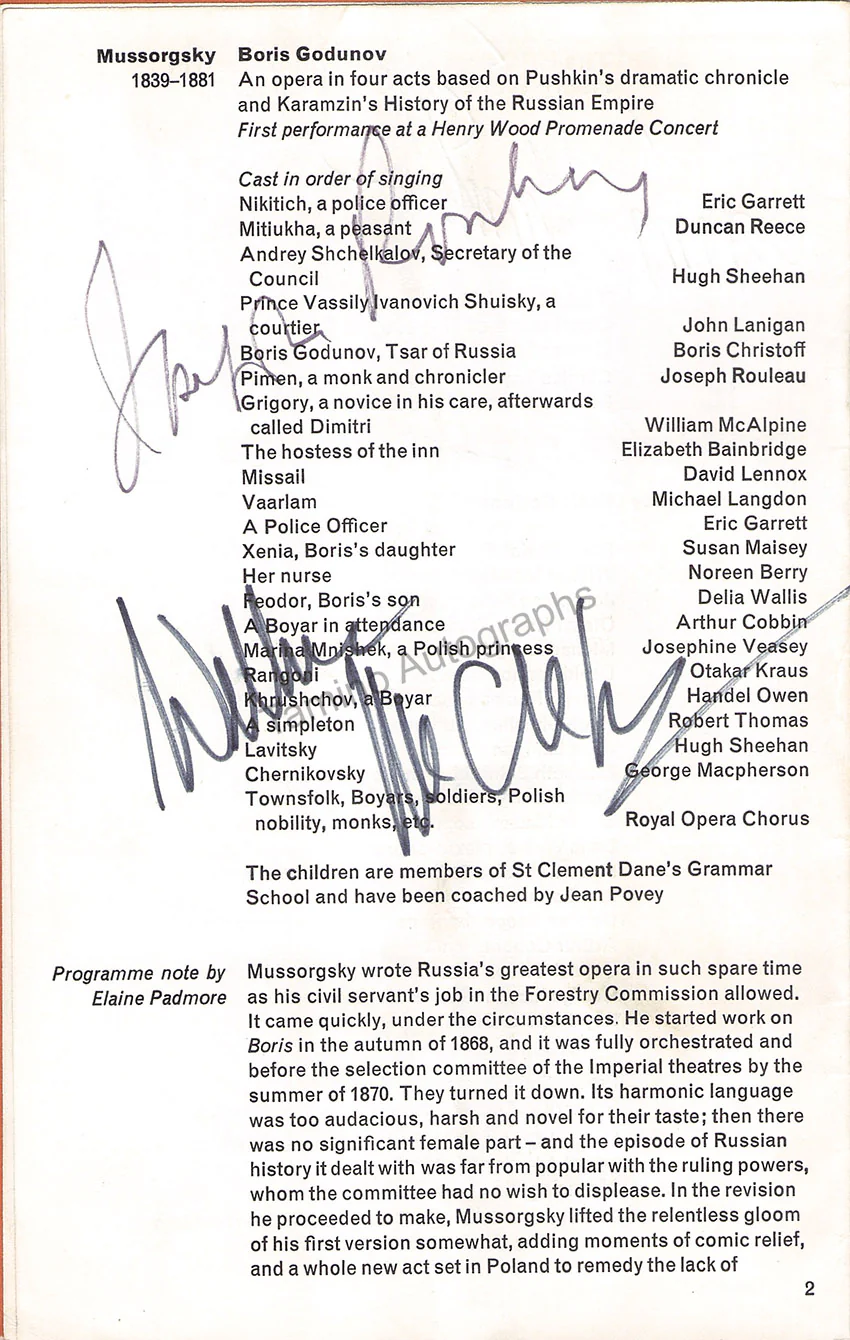 Mussorgsky Boris Godunov
1839–1881 An opera in four acts based on Pushkin's dramatic chronicle
and Karamzin's History of the Russian Empire
First performance at a Henry Wood Promenade Concert
Cast in order of singing
Nikitich, a police officer Eric Garrett
Mitiukha, a peasant Duncan Reece
Andrey Shchelkalov, Secretary of the
Council Hugh Sheehan
Prince Vassily Ivanovich Shuisky, a
courtier John Lanigan
Boris Godunov, Tsar of Russia Boris Christoff
Pimen, a monk and chronicler Joseph Rouleau
Grigory, a novice in his care, afterwards
called Dimitri William McAlpine
The hostess of the inn Elizabeth Bainbridge
Missail David Lennox
Vaarlam Michael Langdon
A Police Officer Eric Garrett
Xenia, Boris's daughter Susan Maisey
Her nurse Noreen Berry
Feodor, Boris's son Delia Wallis
A Boyar in attendance Arthur Cobbin
Marina Mnishek, a Polish princess Josephine Veasey
Rangoni Otakar Kraus
Khrushchov, a Boyar Handel Owen
A simpleton Robert Thomas
Lavitsky Hugh Sheehan
Chernikovsky George Macpherson
Townsfolk, Boyars, soldiers, Polish
nobility, monks, etc. Royal Opera Chorus
The children are members of St Clement Dane's Grammar
School and have been coached by Jean Povey
Programme note by Mussorgsky wrote Russia's greatest opera in such spare time
Elaine Padmore as his civil servant's job in the Forestry Commission allowed.
It came quickly, under the circumstances. He started work on
Boris in the autumn of 1868, and it was fully orchestrated and
before the selection committee of the Imperial theatres by the
summer of 1870. They turned it down. Its harmonic language
was too audacious, harsh and novel for their taste; then there
was no significant female part – and the episode of Russian
history it dealt with was far from popular with the ruling powers,
whom the committee had no wish to displease. In the revision
he proceeded to make, Mussorgsky lifted the relentless gloom
of his first version somewhat, adding moments of comic relief,
and a whole new act set in Poland to remedy the lack of
2
Tamino Autographs